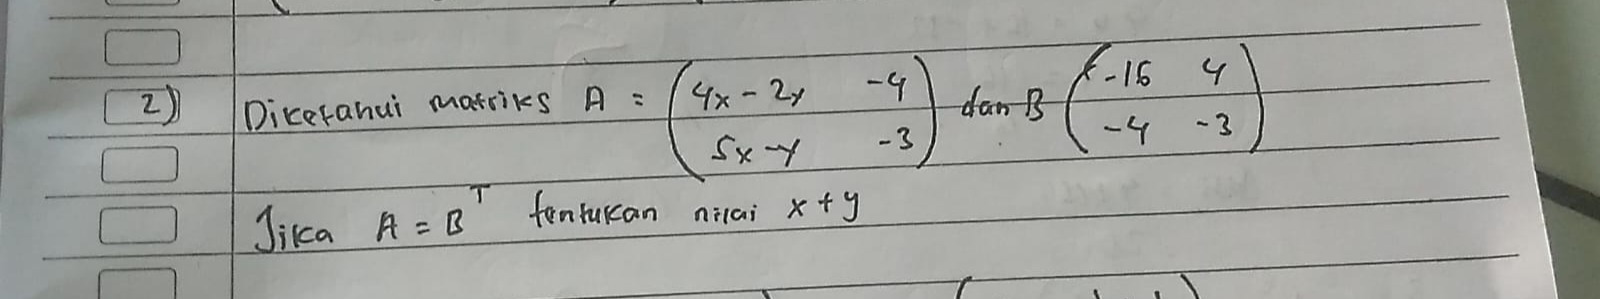 2) Diketahui matriks A = (4x - 2y -4 dan B (-16 4
5x - y -3) -4 -3)
Jika A = B^T tentukan nilai x + y